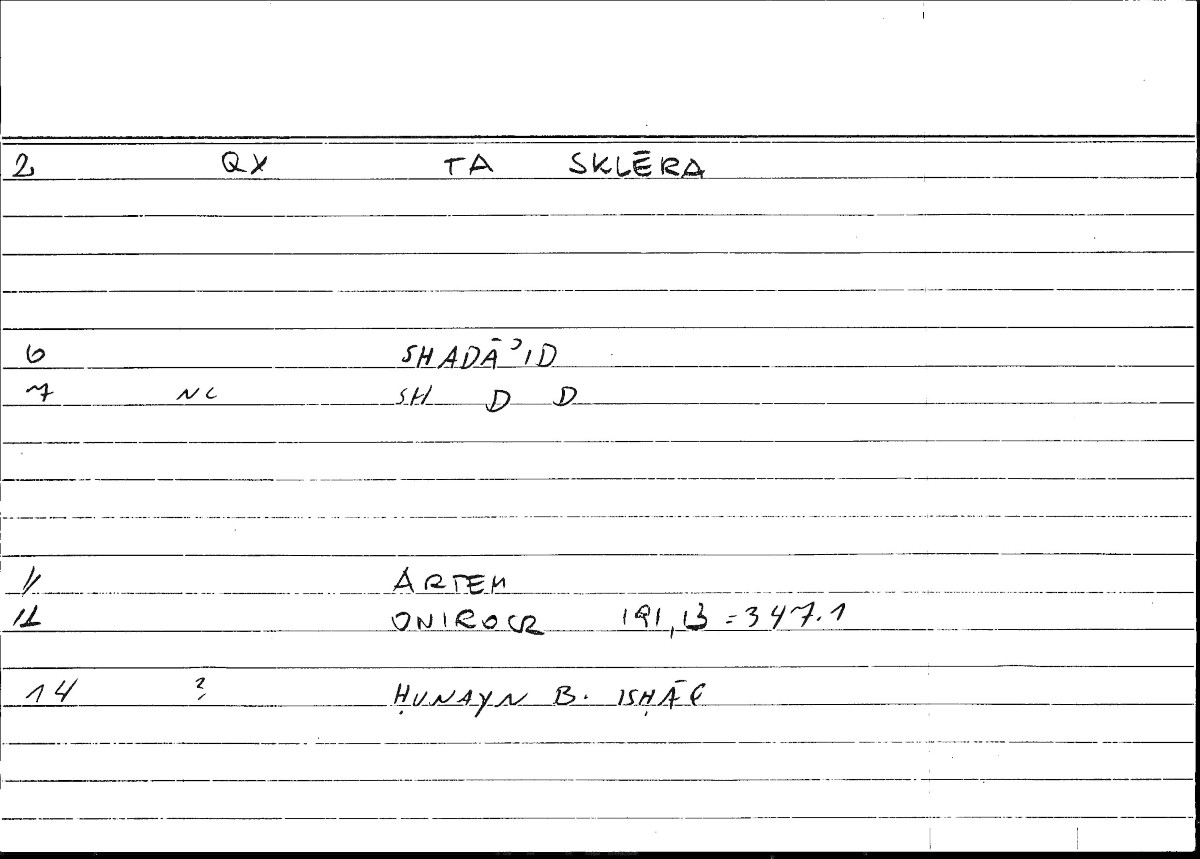 2 QX TA SKLĒRA
6 SHADĀʾID
7 NC SH D D
11 ARTEM
12 ONIROCR 191,13 = 347.1
14 ? ḤUNAYN B. ISḤĀQ